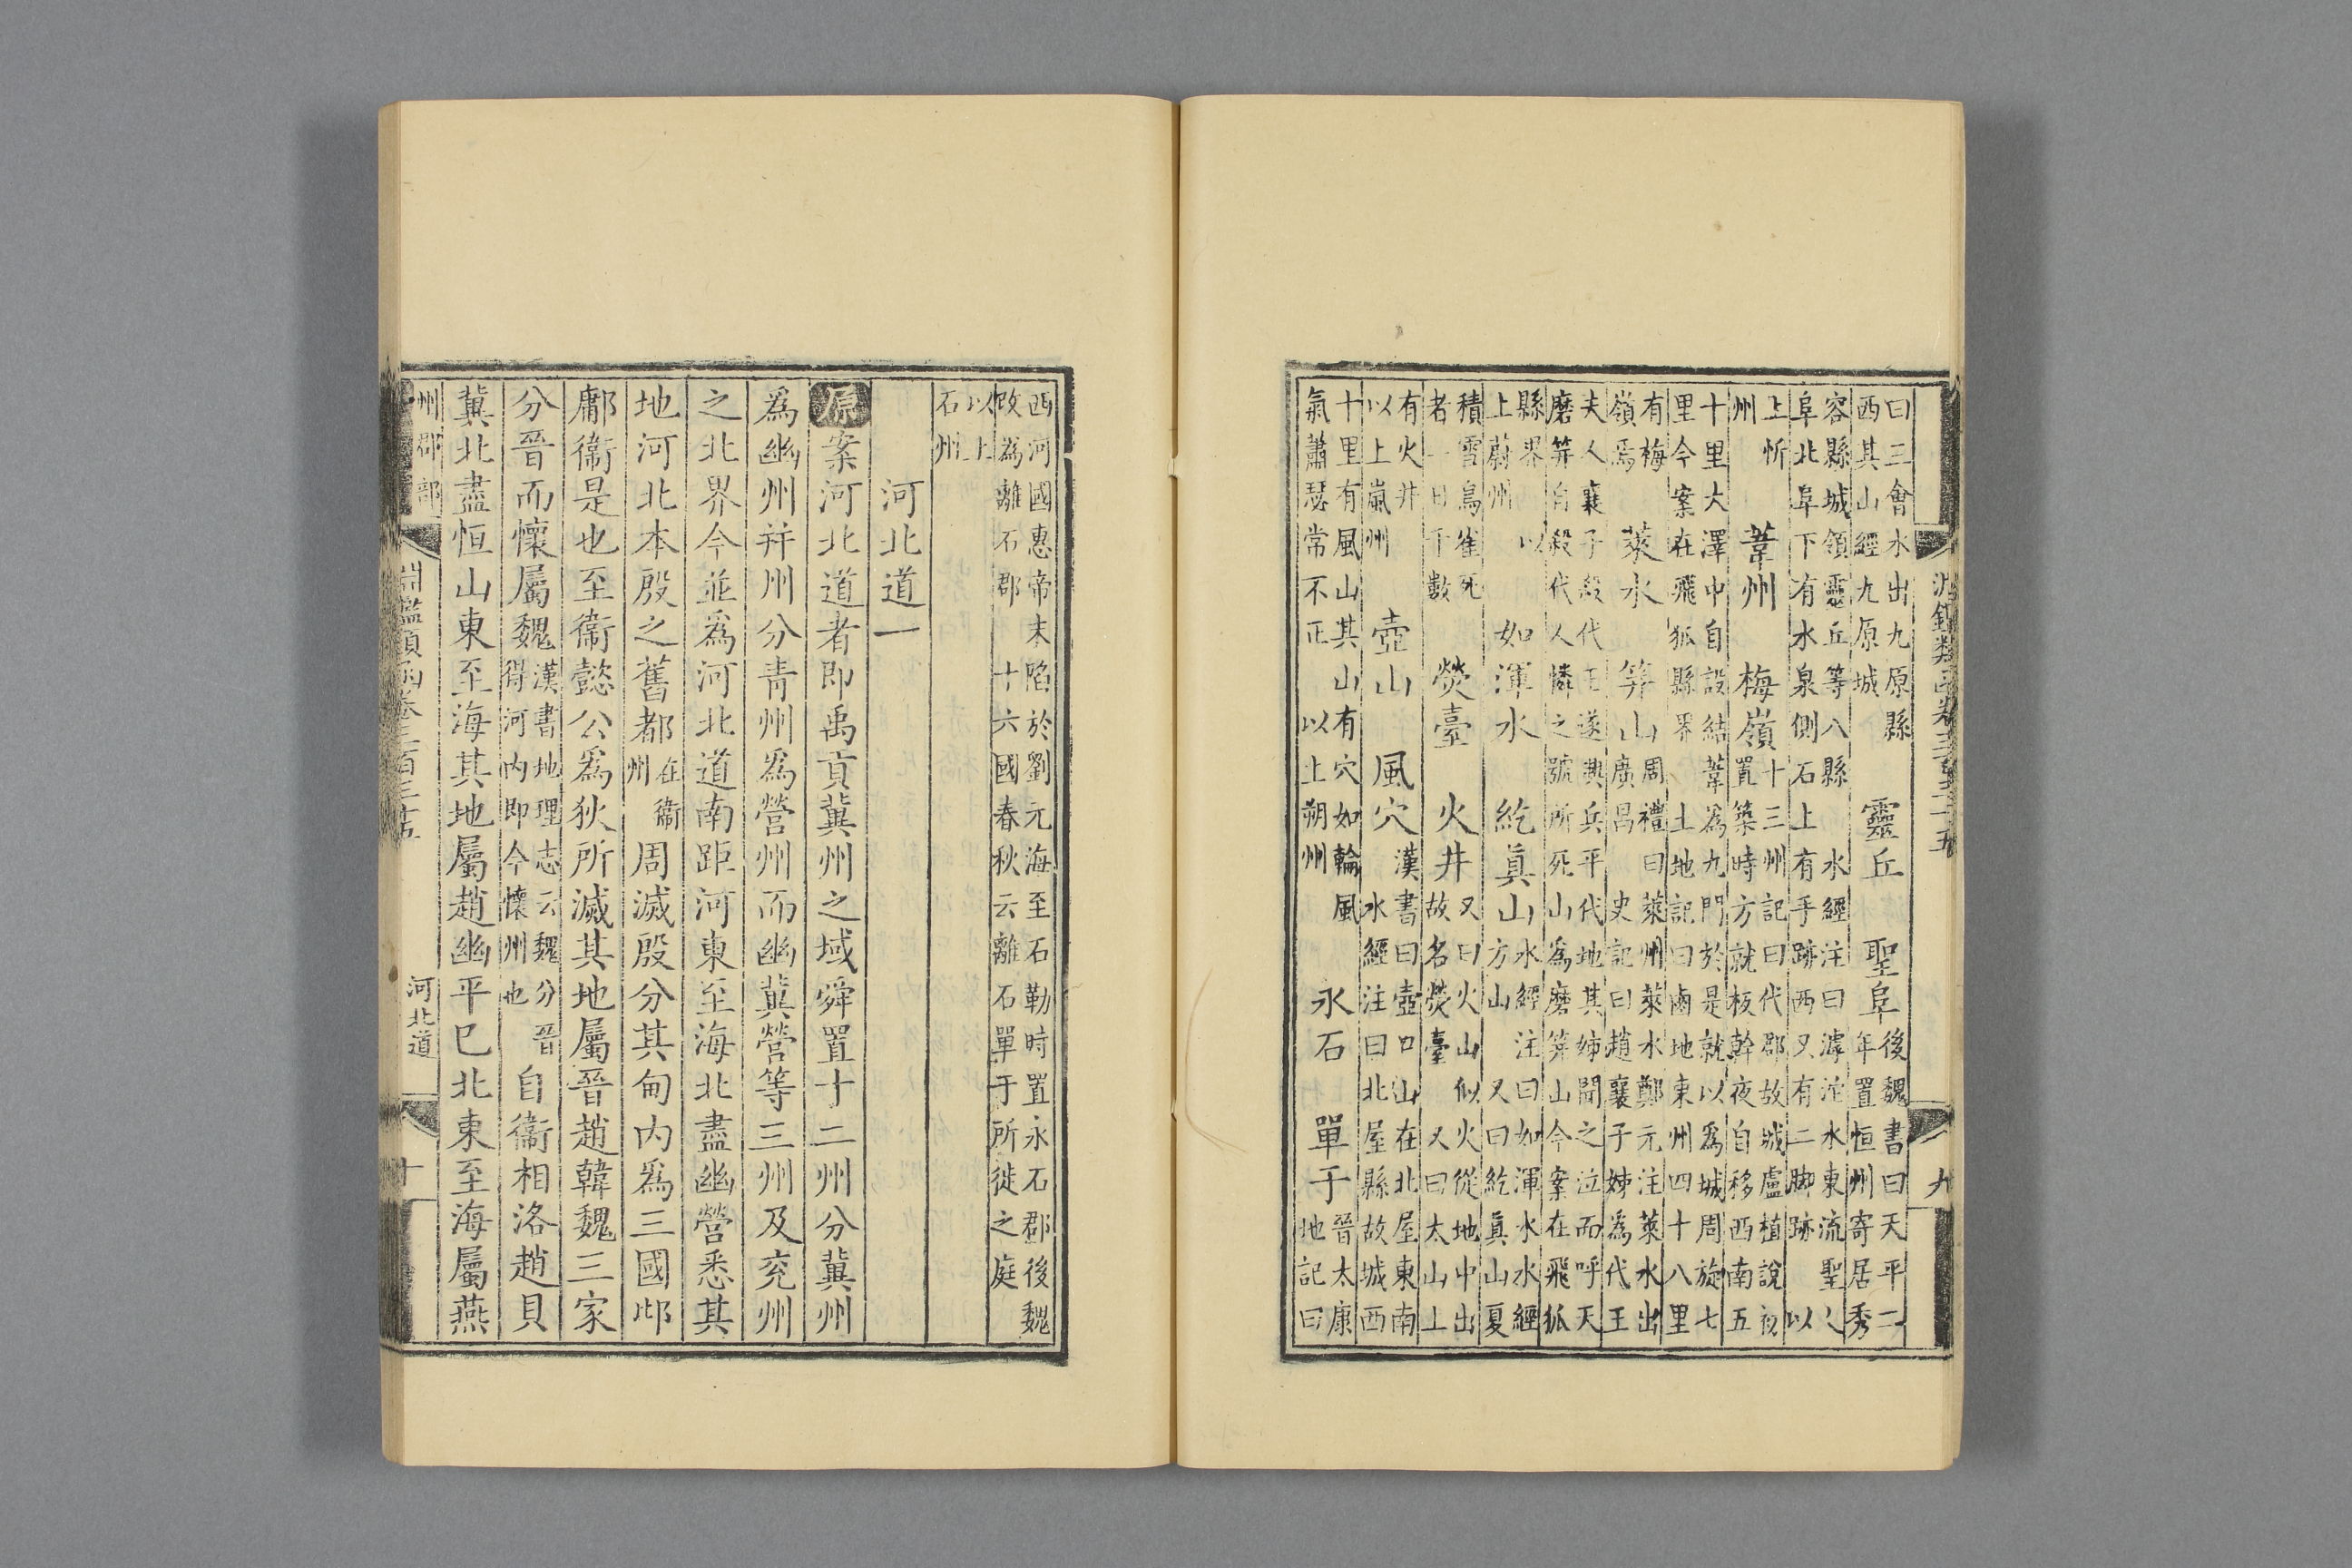 曰三會水出九原縣
西其山經九原城
靈丘　聖阜
後魏書曰天平二
年置恒州寄居秀
容縣城領靈丘等八縣　水經注曰滹沱水東流聖人
阜北阜下有水泉側石上有手跡西又有二脚跡　以
上忻
州
葦州　梅嶺
十三州記曰代郡故城盧植說初
置築時方就板幹夜自移西南五
十里大澤中自設結葦爲九門於是就以爲城周旋七
里今案在飛狐縣界　土地記曰鹵地東州四十八里
有梅
嶺焉
萊水　筭山
周禮曰萊州萊水鄭元注萊水出
廣昌　史記曰趙襄子姊爲代王
夫人襄子殺代王遂興兵平代地其姊聞之泣而呼天
磨筭自殺代人憐之號所死山爲磨筭山今案在飛狐
縣界　以
上蔚州
如渾水　紇眞山
水經注曰如渾水水經
方山　又曰紇眞山夏
積雪鳥雀死
者一日千數
熒臺　火井
又曰火山似火從地中出
故名熒臺　又曰太山上
有火井
以上嵐州
壺山　風穴
漢書曰壺口山在北屋東南
水經注曰北屋縣故城西
十里有風山其山有穴如輪風
氣蕭瑟常不正　以上朔州
永石　單于
晉太康
地記曰
九
西河國惠帝末陷於劉元海至石勒時置永石郡後魏
改爲離石郡　十六國春秋云離石單于所徙之庭
以上
石州
河北道一
原案河北道者即禹貢冀州之域舜置十二州分冀州
爲幽州幷州分青州爲營州而幽冀營等三州及兖州
之北界今並爲河北道南距河東至海北盡幽營悉其
地河北本殷之舊都在衞州周滅殷分其甸内爲三國邶
鄘衞是也至衞懿公爲狄所滅其地屬晉趙韓魏三家
分晉而懷屬魏
漢書地理志云魏分晉
得河内即今懷州也
自衞相洛趙貝
冀北盡恒山東至海其地屬趙幽平巳北東至海屬燕
州郡部
淵鑑類函卷三百三十五
河北道
十